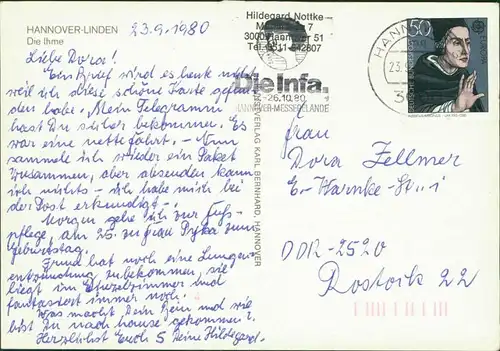 HANNOVER-LINDEN
Die Ihme
23.9.1980
Liebe Dora!
Ein Brief wird es heute nicht
weil ich diese schöne Karte gefun-
den habe. Mein Telegramm
hast Du sicher bekommen. Es
war eine nette Fahrt. - Nun
sammele ich wieder ein Paket
zusammen, aber absenden kann
ich nichts - ich habe mich bei
der Post erkundigt -
Morgen gehe ich zur Fuß-
pflege, am 25. zu Frau Pyka zum
Geburtstag.
hat noch eine Lungen-
entzündung zubekommen, sie
liegt im und
fantasiert immer noch.
Was macht Dein Bein und wie
bist Du nach hause gekommen?
Herzlichst Euch 5 Deine Hildegard.
VERLAG KARL BERNHARD, HANNOVER
Hildegard Nottke
7
3000 Hannover 51
Tel. 0511 642807
Die Infa.
-26.10.80
HANNOVER-MESSEGELÄNDE
HANN
23.
3
50
EUROPA
DEUTSCHE BUNDESPOST
ALBERTUS MAGNUS
Frau
Dora Zellmer
E.-Warnke-Str. 11
DDR-2520
Rostock 22